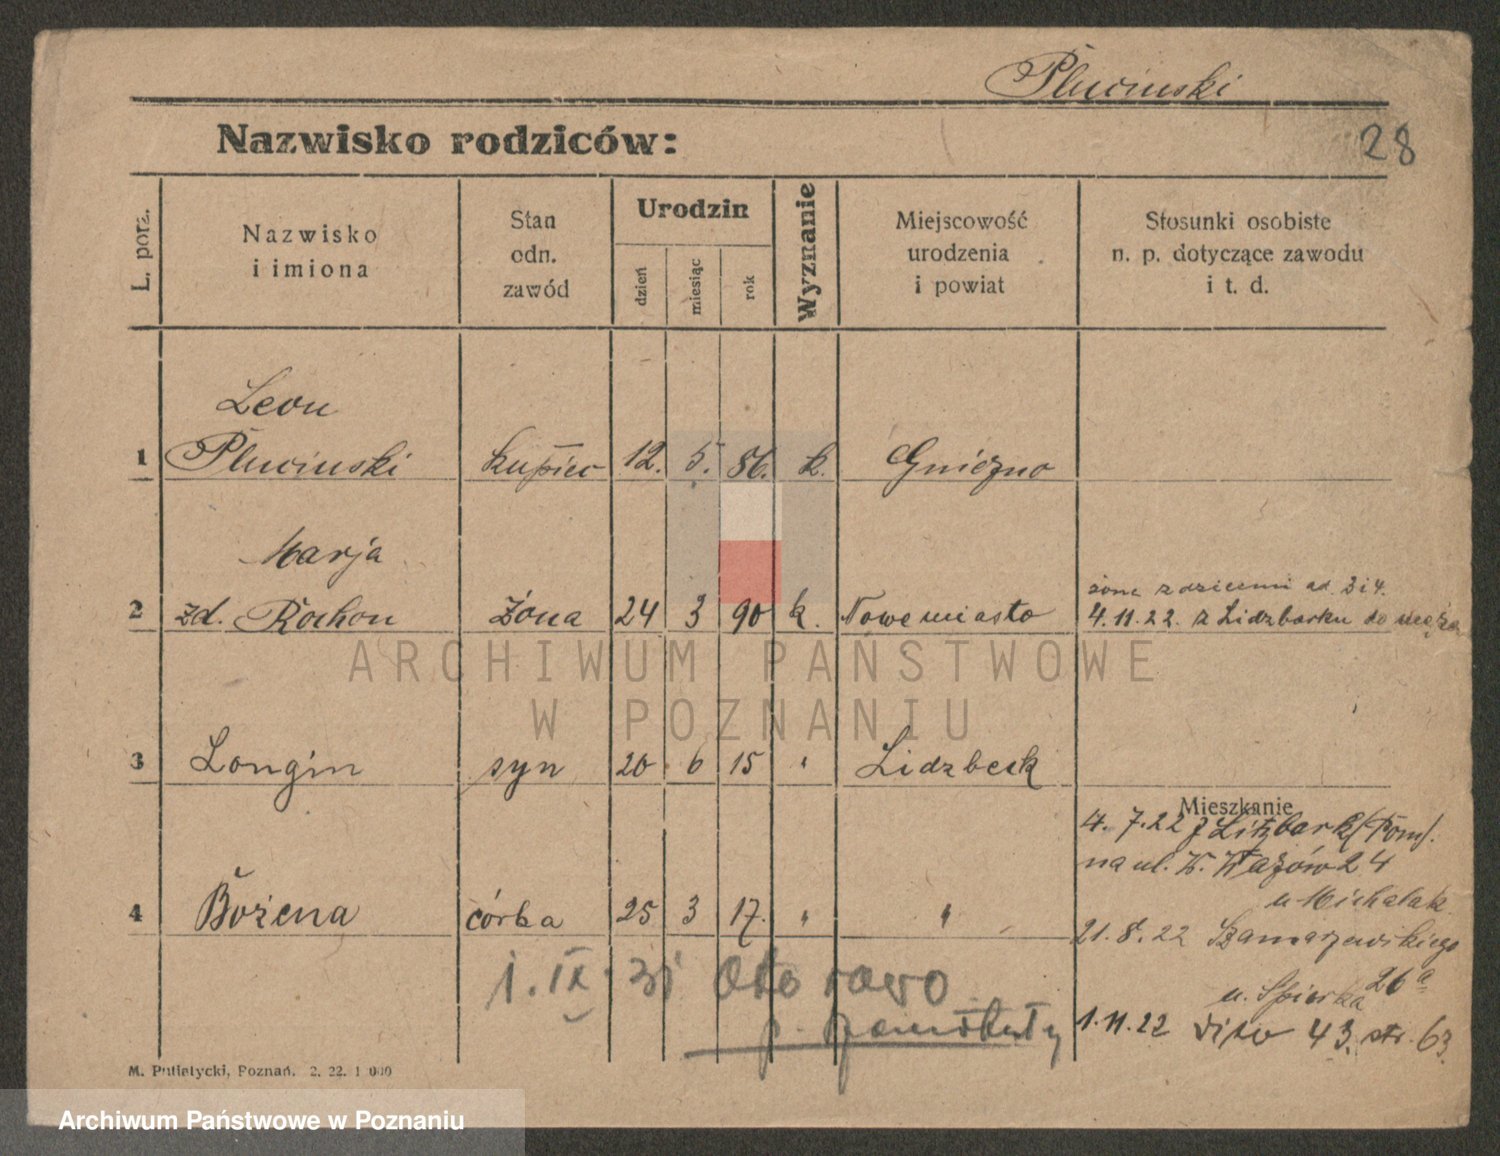 Plucinski
28
Nazwisko rodziców:
L. porz.
Nazwisko
i imiona
Stan
odn.
zawód
Urodzin
dzień
miesiąc
rok
Wyznanie
Miejscowość
urodzenia
i powiat
Stosunki osobiste
n. p. dotyczące zawodu
i t. d.
Leon
1 Plucinski kupiec 12. 5. 86. k. Gniezno
Marja
żona z dziećmi ad. 3 i 4.
2 zd. Rochon żona 24 3 90 k. Nowemiasto 4.11.22. z Lidzbarku do męża
3 Longin syn 20 6 15 " Lidzbark
Mieszkanie
4. 7.22 z Litzbark (Pom).
na ul. W. Wazów 24
u Michalak
4 Bożena córka 25 3 17. " "
21.8.22 Szamarzewskiego
26a
u. Spierka
1.11.22 dito 43. str. 63.
1. IX 31 Otorowo
p. Szamotuły
M. Putiatycki, Poznań. 2. 22. 1 000
ARCHIWUM PAŃSTWOWE
W POZNANIU
Archiwum Państwowe w Poznaniu